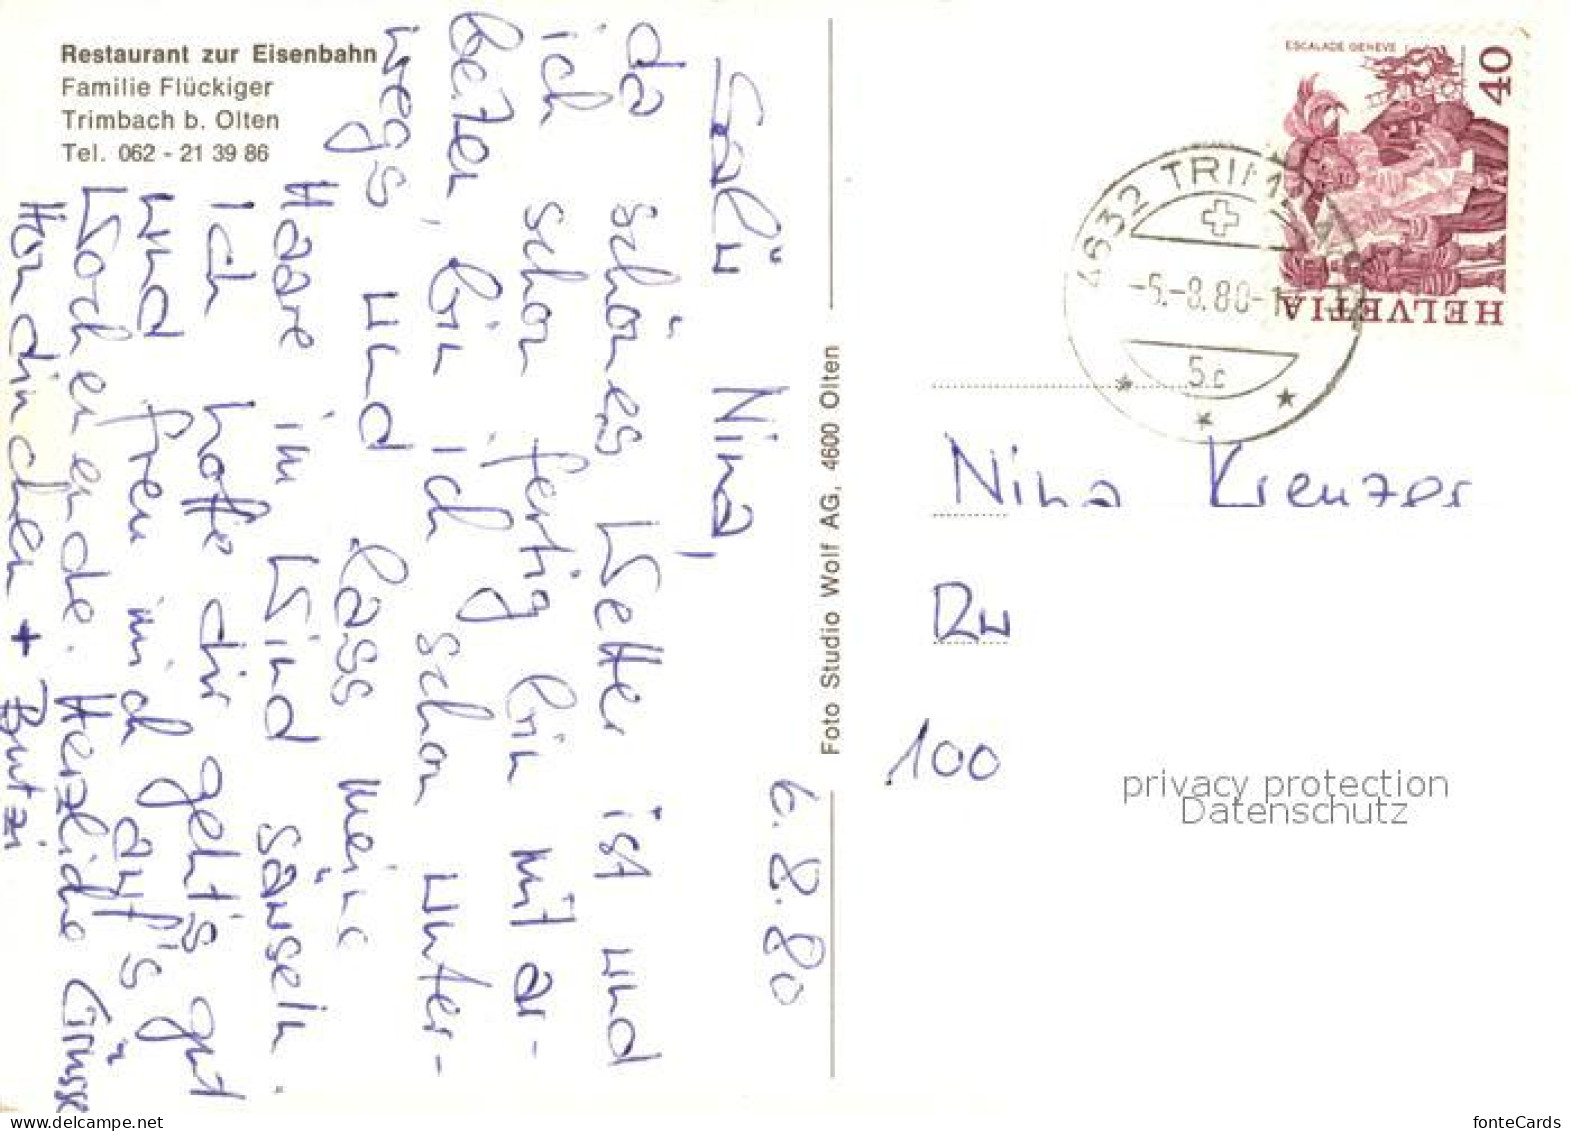 Restaurant zur Eisenbahn
Familie Flückiger
Trimbach b. Olten
Tel. 062 - 21 39 86
6.8.80
Salü Nina,
da schönes Wetter ist und
ich schon fertig bin mit ar-
beiten, bin ich schon unter-
wegs und lass meine
Haare im Wind säuseln.
Ich hoffe dir geht's gut
und freu mich auf's
Wochenende. Herzliche Grüsse
+ Butzi
Foto Studio Wolf AG, 4600 Olten
ESCALADE GENEVE
40
HELVETIA
4632 TRIMBACH
-5.-8.80-1
5c
Nina Kreuzer
100
privacy protection
Datenschutz
fonteCards